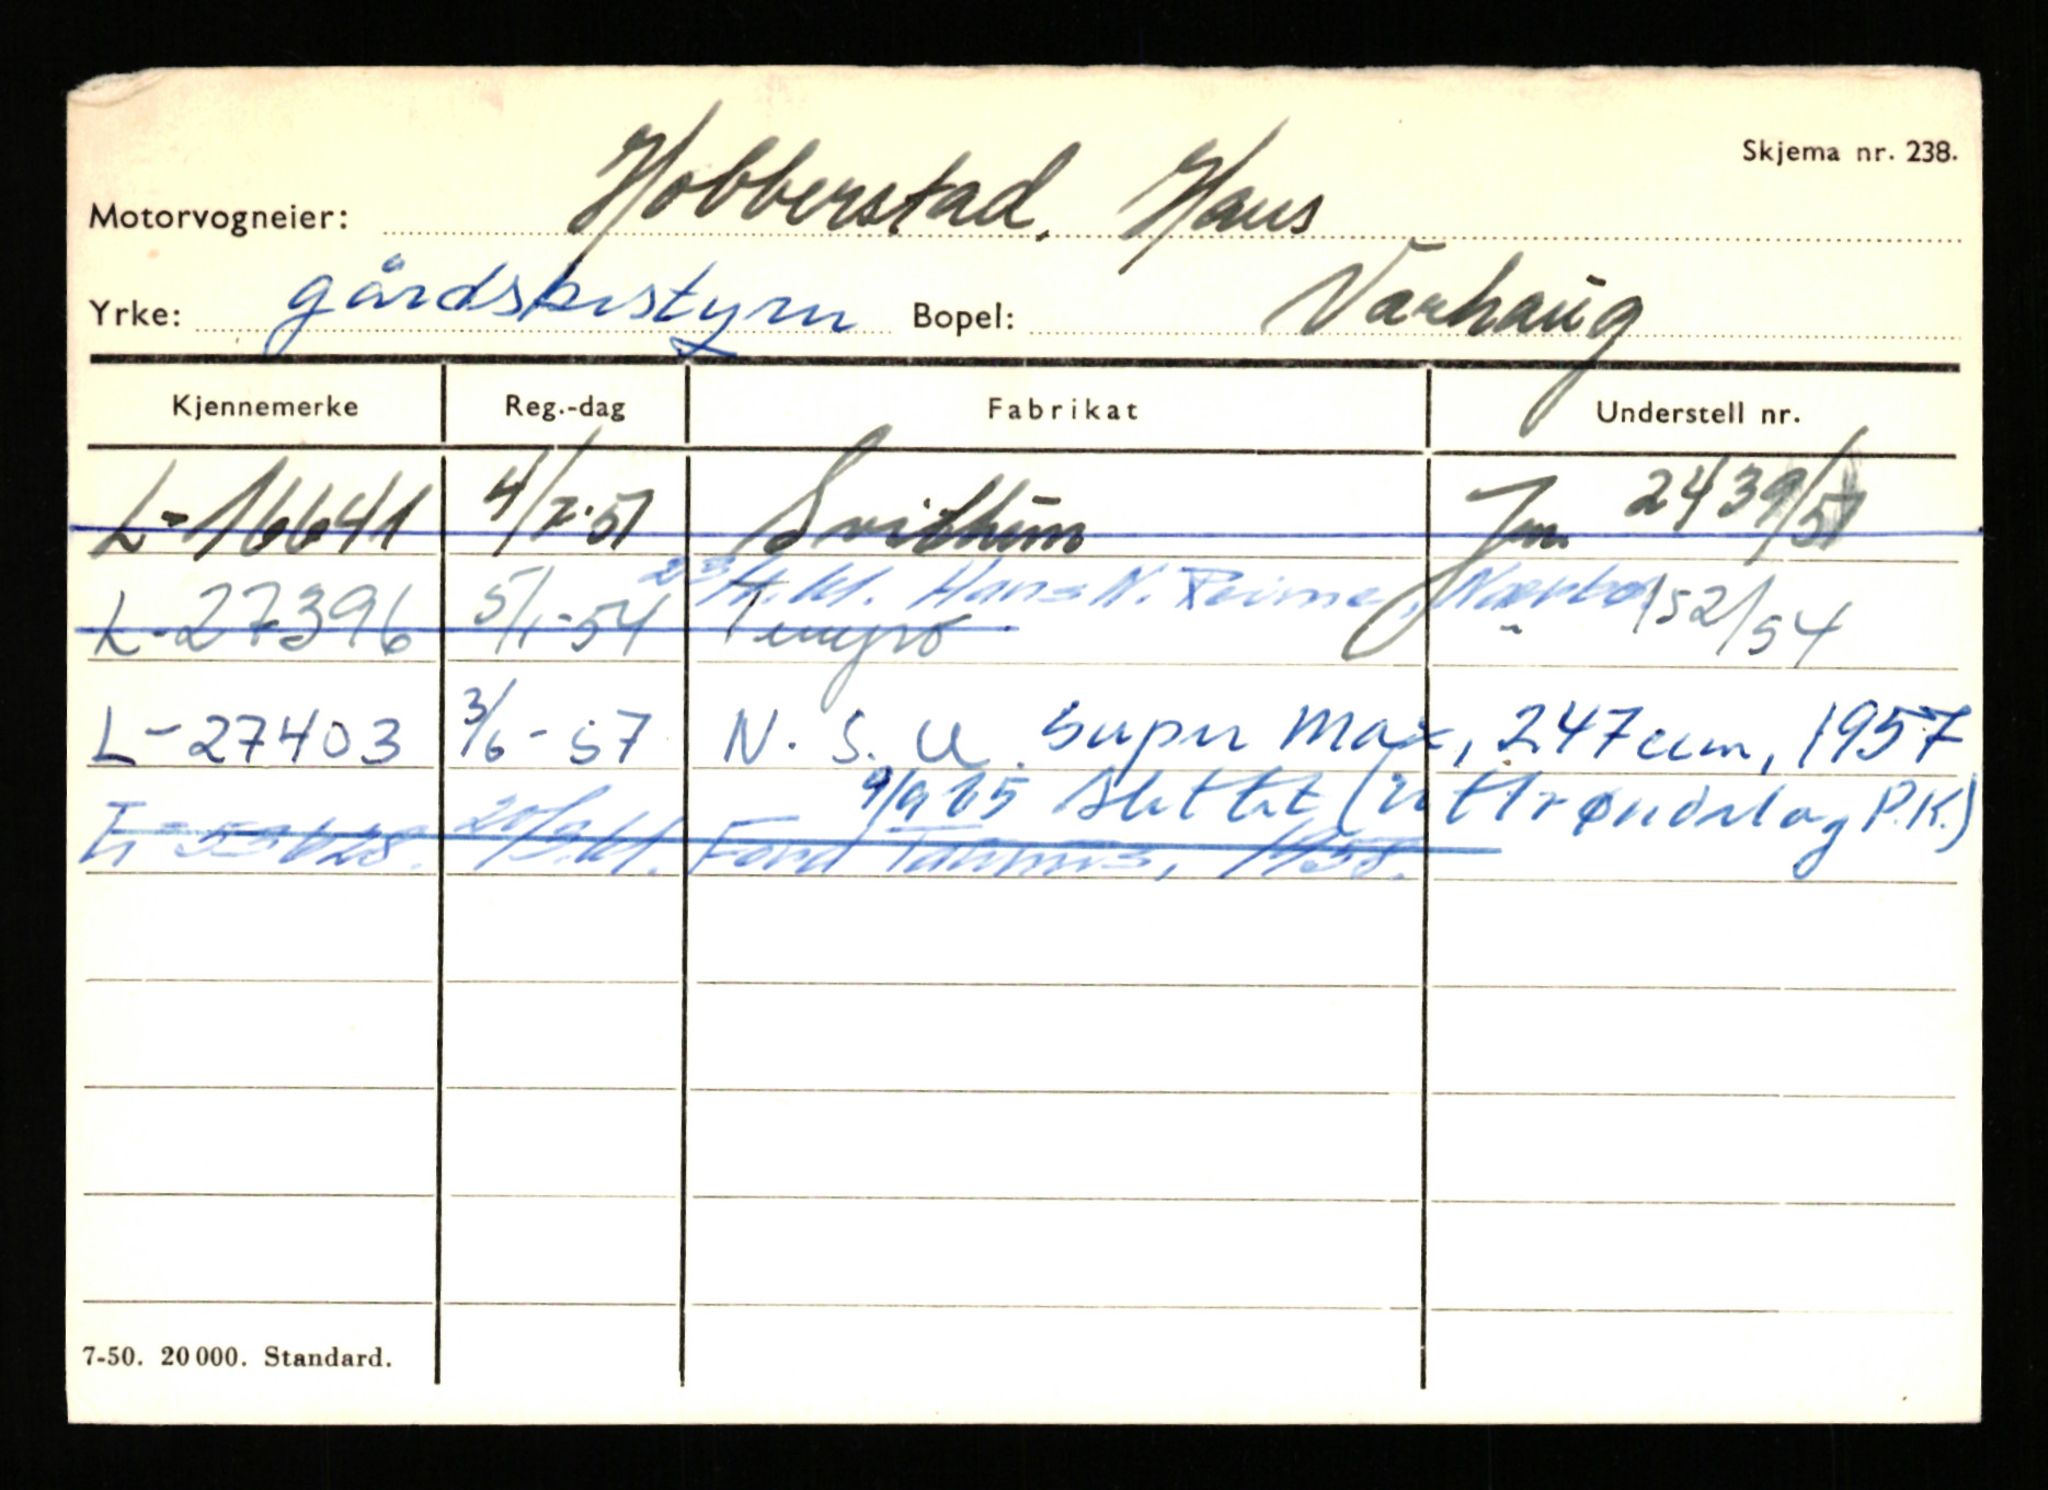 Skjema nr. 238.
Motorvogneier: Hobberstad, Hans
Yrke: gårdsbestyrer Bopel: Varhaug
Kjennemerke Reg.-dag Fabrikat Understell nr.
L-16641 4/7-51 Svithun Jm. 2439/51
23/ Hans N. Reime, Nærbø
L-27396 5/1-54 Tempo 152/54
L-27403 3/6-57 N.S.U. Super Max, 247 ccm, 1957
9/9 65 slettet (u. ttrøndelag P.K.)
L-53628. 20/3.61. Ford Taunus, 1958.
7-50. 20 000. Standard.